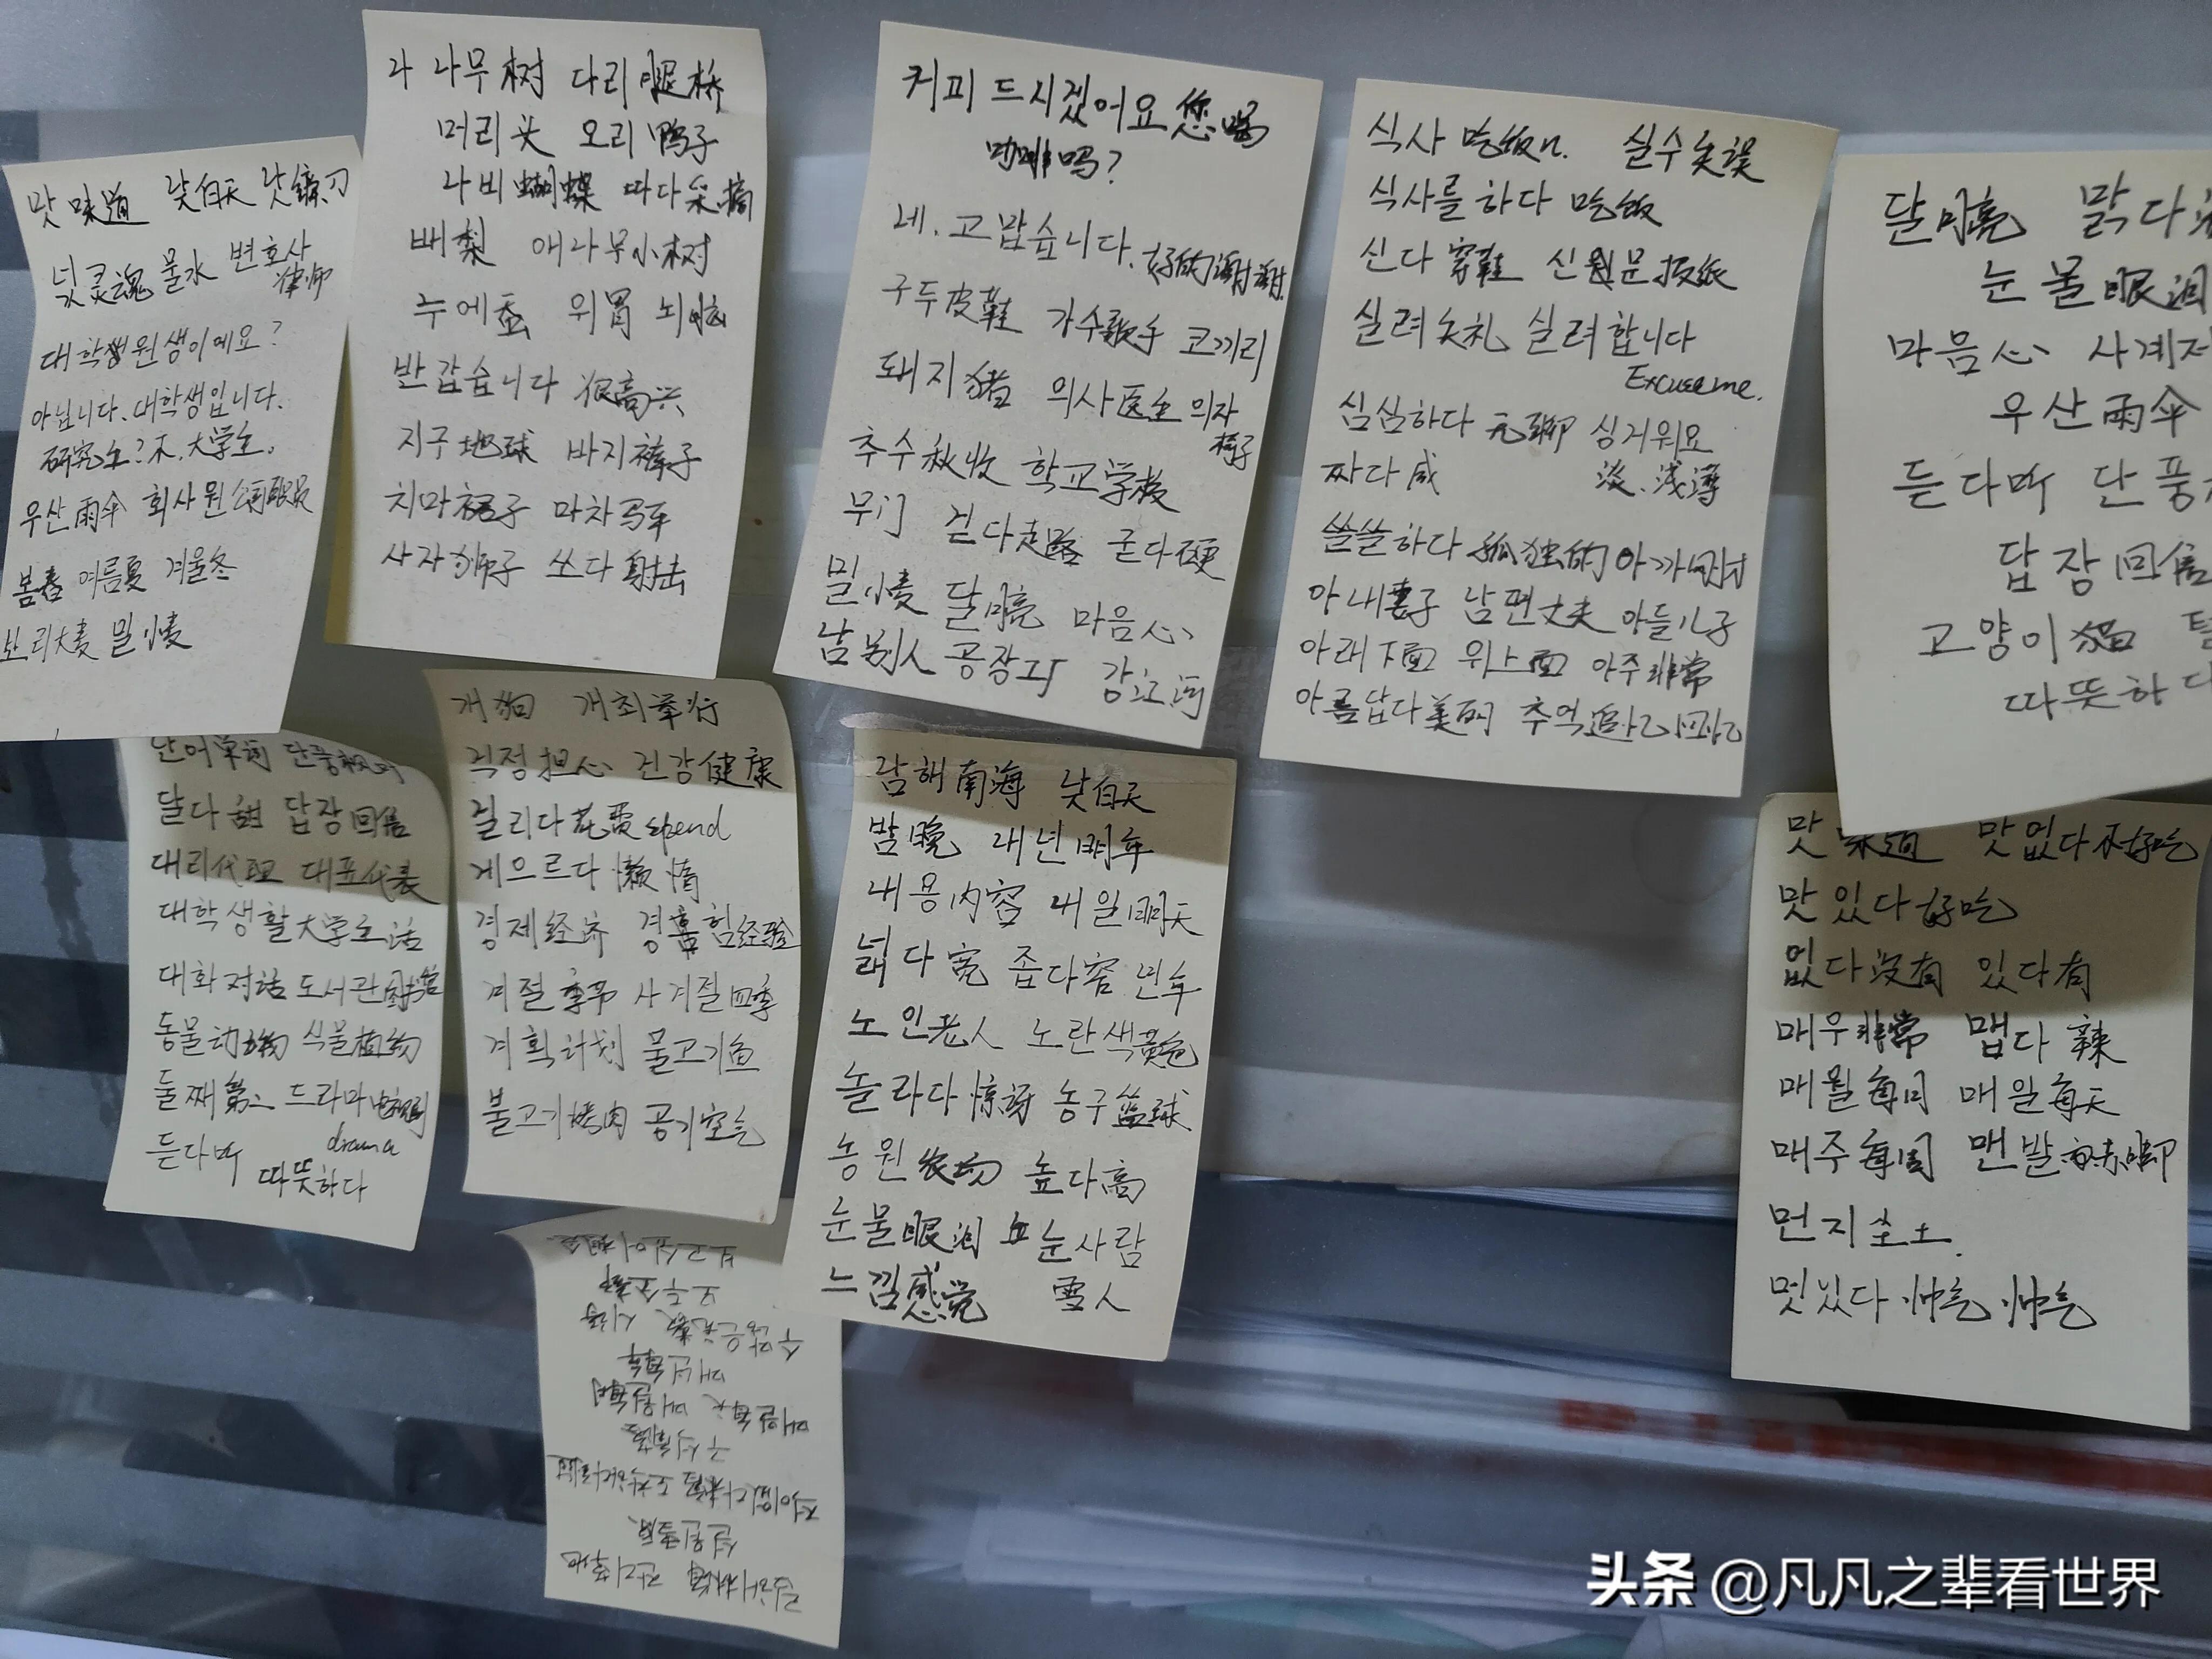 맛 味道 낮 白天 낫 镰刀
넋 灵魂 물 水 변호사
律师
대학원생이에요?
아닙니다. 대학생입니다.
研究生? 不, 大学生.
우산 雨伞 회사원 公司职员
봄 春 여름 夏 겨울 冬
보리 大麦 밀 小麦
나무 树 다리 腿 桥
머리 头 오리 鸭子
나비 蝴蝶 따다 采.摘
배 梨 애나무 小树
누에 蚕 위 胃 뇌 脑
반갑습니다 很高兴
지구 地球 바지 裤子
치마 裙子 마차 马车
사자 狮子 쏘다 射击
커피 드시겠어요 您喝
咖啡吗?
네. 고맙습니다. 好的谢谢.
구두 皮鞋 가수 歌手 코끼리
돼지 猪 의사 医生 의자
椅子
추수 秋收 학교 学校
무 门 걷다 走路 굳다 硬
밀 小麦 달 月亮 마음 心
남 别人 공장 工厂 강 江河
식사 吃饭n. 실수 失误
식사를 하다 吃饭
신다 穿鞋 신문 报纸
실려 失礼 실려합니다
Excuse me.
심심하다 无聊 싱거워요
짜다 咸 淡.浅薄
쓸쓸하다 孤独的 아까 刚才
아내 妻子 남편 丈夫 아들 儿子
아래 下面 위 上面 아주 非常
아름답다 美丽 추억 追忆 回忆
달 月亮 맑다
눈물 眼泪
마음 心 사계저
우산 雨伞
듣다 听 단풍
답장 回信
고양이 猫 털
따뜻하다
단어 单词 단풍
달다 甜 답장 回信
대리 代理 대표 代表
대학생활 大学生活
대화 对话 도서관 图书馆
동물 动物 식물 植物
둘째 第二 드라마 电视剧
듣다 听 drama
따뜻하다
개 狗 개최 举行
걱정 担心 건강 健康
걸리다 花费 spend
게으르다 懒惰
경제 经济 경험 经验
계절 季节 사계절 四季
계획 计划 물고기 鱼
불고기 烤肉 공기 空气
남해 南海 낮 白天
밤 晚 내년 明年
내용 内容 내일 明天
넓다 宽 좁다 窄 년 年
노인 老人 노란색 黄色
놀라다 惊讶 농구 篮球
농원 农场 높다 高
눈물 眼泪 눈사람
느낌 感觉 雪人
맛 味道 맛없다 不好吃
맛있다 好吃
없다 没有 있다 有
매우 非常 맵다 辣
매월 每月 매일 每天
매주 每周 맨발 赤脚
먼지 尘土.
멋있다 帅气 帅气
头条 @凡凡之辈看世界